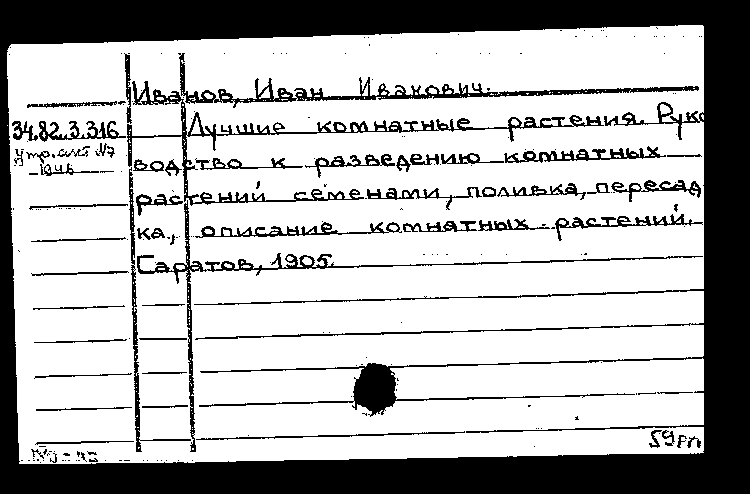 Иванов, Иван Иванович.
34.82.3.316
Лучшие комнатные растения. Руко
Утр. акт №7
1946
водство к разведению комнатных
растений семенами, поливка, пересад
ка, описание комнатных растений.
Саратов, 1905.